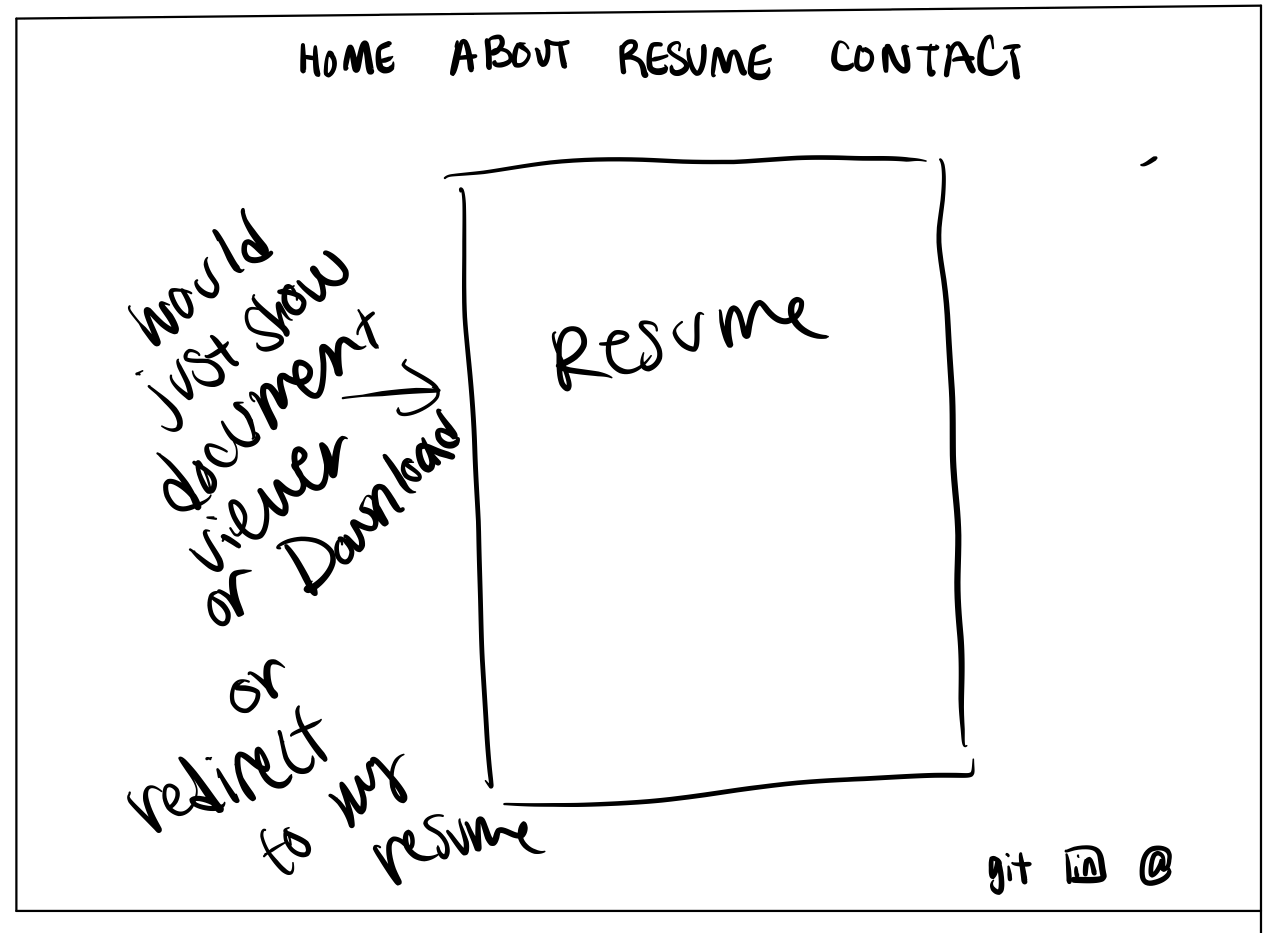 HOME ABOUT RESUME CONTACT
would
just show
document
viewer
or Download
or
redirect
to my
resume
Resume
git in @